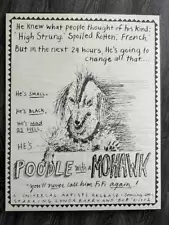 He knew what people thought of his kind:
"High Strung," "Spoiled Rotten," "French."
But in the next 24 hours, He's going to
change all that.
He's SMALL.
He's BLACK.
He's MAD
AS HELL.
HE'S
POODLE with a MOHAWK
"you'll never call him FiFi again!"
A UNIVERSAL ARTISTS RELEASE
STARRING LYNDA BARRY AND